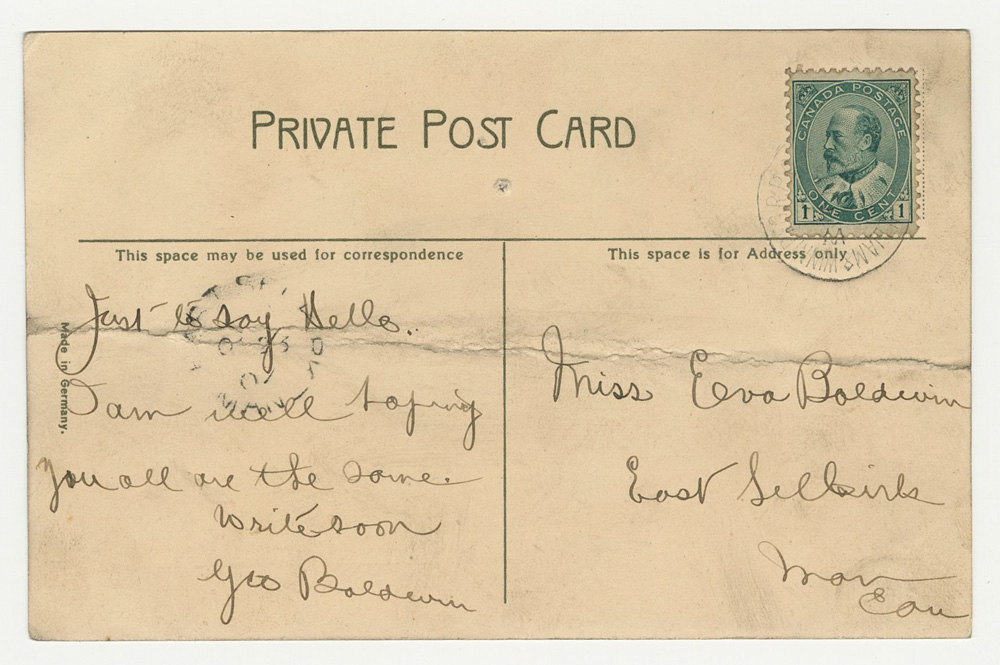 PRIVATE POST CARD
CANADA POSTAGE
ONE CENT
1 1
This space may be used for correspondence
This space is for Address only
Made in Germany.
Just to say Hello.
I am well hoping
you all are the same.
Write soon
Geo Baldwin
Miss Eva Baldwin
East Selkirk
Man
Can
MAN